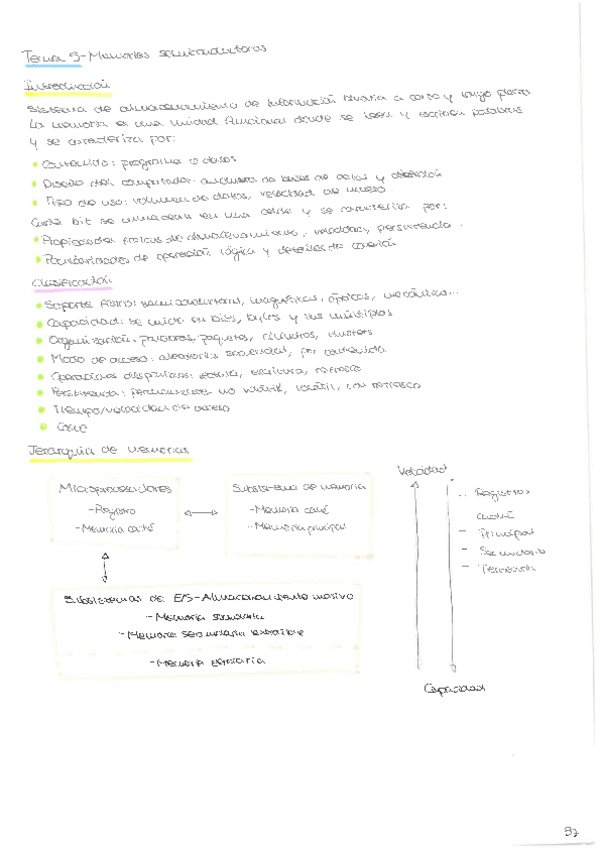 Tema 5- Memorias semiconductoras
Introducción
Sistema de almacenamiento de información binaria a corto y largo plazo
La memoria es una unidad funcional donde se leen y escriben palabras
y se caracteriza por:
• Contenido: programa o datos
• Diseño del computador: anchura de buses de datos y dirección
• Tipo de uso: volumen de datos, velocidad de acceso
Cada bit se almacena en una celda y se caracteriza por:
• Propiedades físicas de almacenamiento, velocidad, persistencia...
• Particularidades de operación lógica y detalles de conexión
Clasificación
• Soporte físico: semiconductoras, magnéticas, ópticas, mecánicas...
• Capacidad: se mide en bits, bytes y sus múltiplos
• Organización: palabras, paquetes, cilindros, clusters
• Modo de acceso: aleatorio secuencial, por contenido
• Operaciones disponibles: lectura, escritura, refresco
• Persistencia: permanentes no volátil, volátil, con refresco
• Tiempo/velocidad de acceso
• Coste
Jerarquía de memorias
Microprocesadores
- Registro
- Memoria caché
Subsistema de memoria
- Memoria caché
- Memoria principal
Subsistemas de E/S-Almacenamiento masivo
- Memoria secundaria
- Memoria secundaria extraíble
- Memoria terciaria
Velocidad
- Registros
caché
- Principal
- Secundaria
- Terciaria
Capacidad